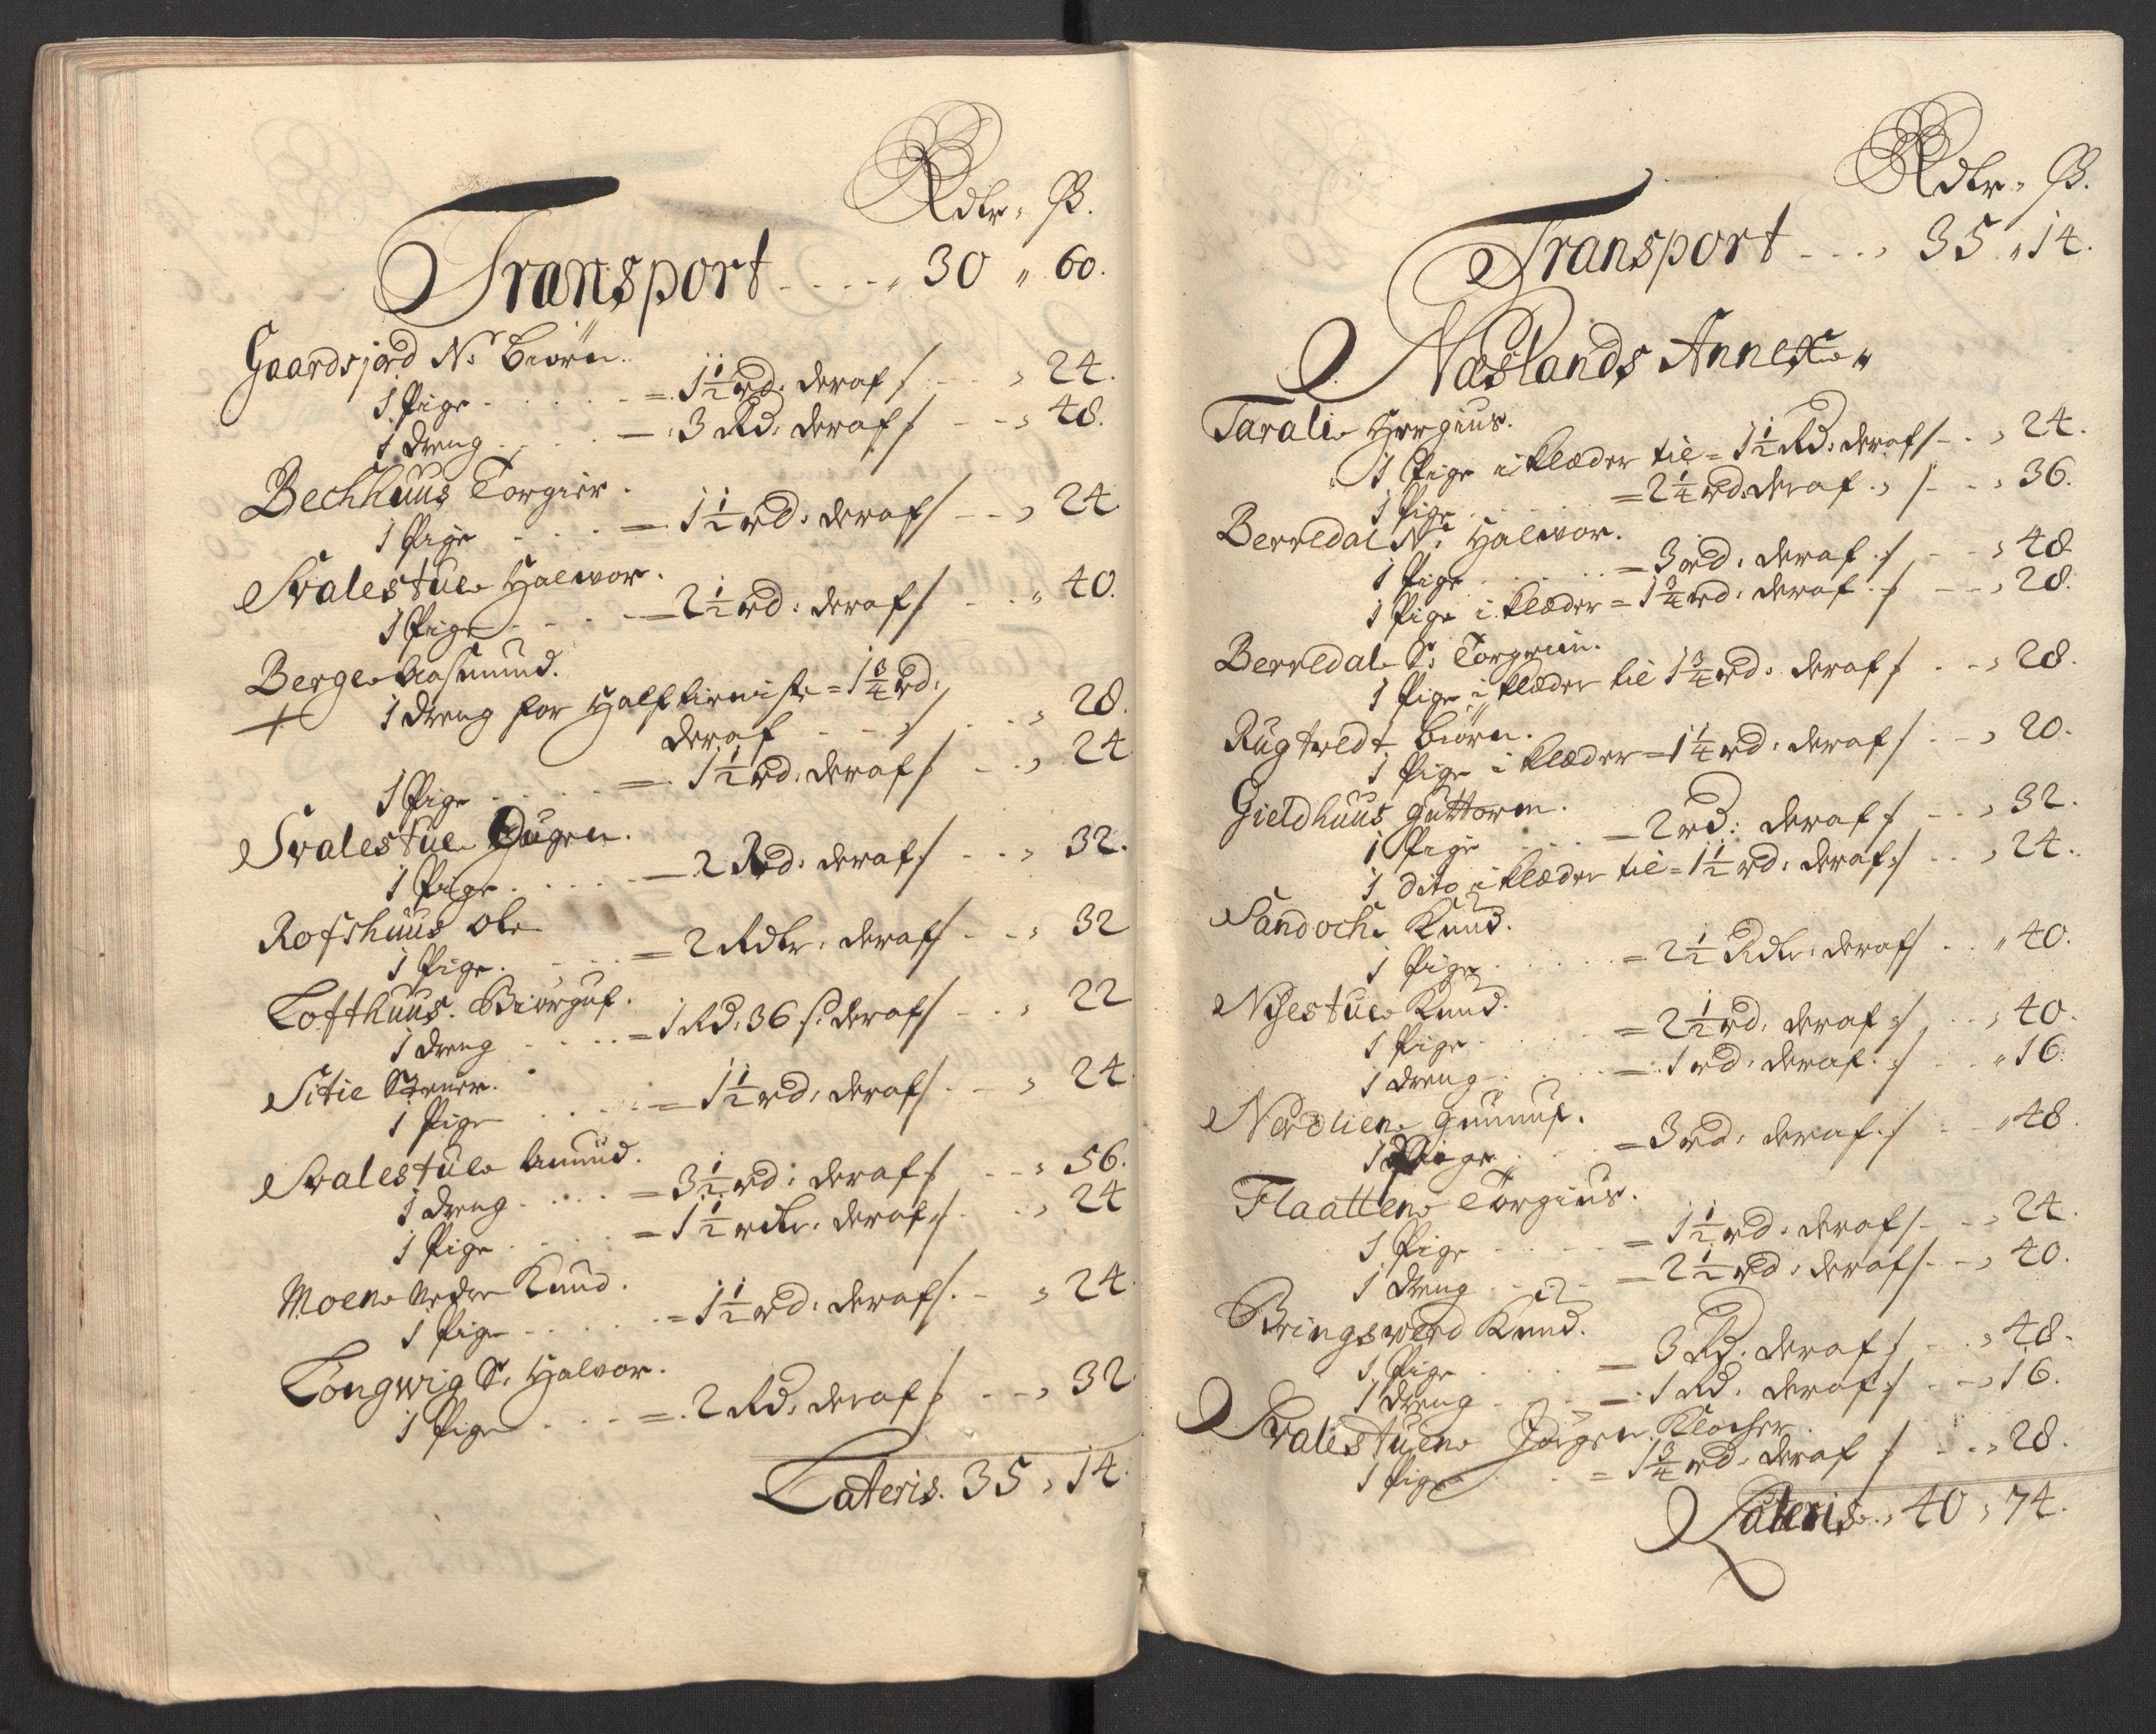 Rdlr. ß.
Transport - - - - „ 30 „ 60.
Gaardsjord N: Biörn.
1 Pige - - - - = 1½ rd: deraf /: - - , 24.
1 dreng - - - - = 3 Rd: deraf /: - - , 48.
Bechhuus Torgier.
1 Pige - - - = 1½ rd: deraf /: - - , 24
Svalestue Halvor.
1 Pige - - - = 2½ rd: deraf /: - - „ 40.
Berge Aasmund.
+ 1 dreng for Halftieniste = 1¾ rd:
deraf - - /: - - , 28.
1 Pige - - - - = 1½ rd: deraf /: - - , 24
Svalestue Eugen.
1 Pige - - - - = 2 Rd: deraf /: - - , 32.
Rofshuus Ole
1 Pige - - - = 2 Rdlr: deraf /: - - , 32
Lofthuus. Biörguf.
1 dreng - - - = 1 Rd: 36 s: deraf /: - - , 22
Sitie
1 Pige - - - = 1½ rd: deraf /: - - , 24
Svalestue Amund.
1 dreng - - - = 3½ rd: deraf /: - - , 56.
1 Pige - - - = 1½ rdlr: deraf /: - - , 24
Moen Nedre Knud.
1 Pige - - - = 1½ rd: deraf /: - , 24
Longwig S: Halvor.
1 Pige - - - = 2 Rd: deraf /: - - , 32
Lateris. 35 , 14.
Rdlr. ß.
Transport - - - , 35 „ 14.
Næslands Annex „
Tarali Hergius.
1 Pige i klæder til = 1½ Rd: deraf /: - , 24.
1 Pige - - = 2¼ rd: deraf , /: - - , 36.
Berredal N: Halvor.
1 Pige - - - = 3 rd: deraf /: - - , 48
1 Pige i klæder = 1¾ rd: deraf /: - - , 28.
Berredal S: Torgrim.
1 Pige i klæder til 1¾ rd: deraf /: - - , 28.
Rugtvedt Biörn.
1 Pige i klæder = 1¼ rd: deraf /: - - , 20.
Gieldhuus Guttorm.
1 Pige - - - = 2 rd: deraf /: - - , 32.
1 dito i klæder til = 1½ rd: deraf /: - - , 24.
Sandoch Knud.
1 Pige - - - = 2½ Rdlr: deraf /: - - „ 40.
Nisestue Knud.
1 Pige - - - = 2½ rd: deraf /: - - , 40.
1 dreng - - - = 1 rd: deraf /: - - „ 16.
Nordlien Gunnuf.
1 Pige - - = 3 rd: deraf /: - - „ 48
Flaatten Torgius.
1 Pige - - - = 1½ rd: deraf /: - - , 24.
1 dreng - - - = 2½ rd: deraf /: - - , 40.
Bringswerd Knud.
1 Pige - - - = 3 Rd: deraf /: - - , 48.
1 dreng - - - = 1 Rd: deraf /: - - , 16.
Svalestuen Jörgen Klocher.
1 Pige - - = 1¾ rd: deraf /: - - , 28.
Lateris. , 40 , 74.